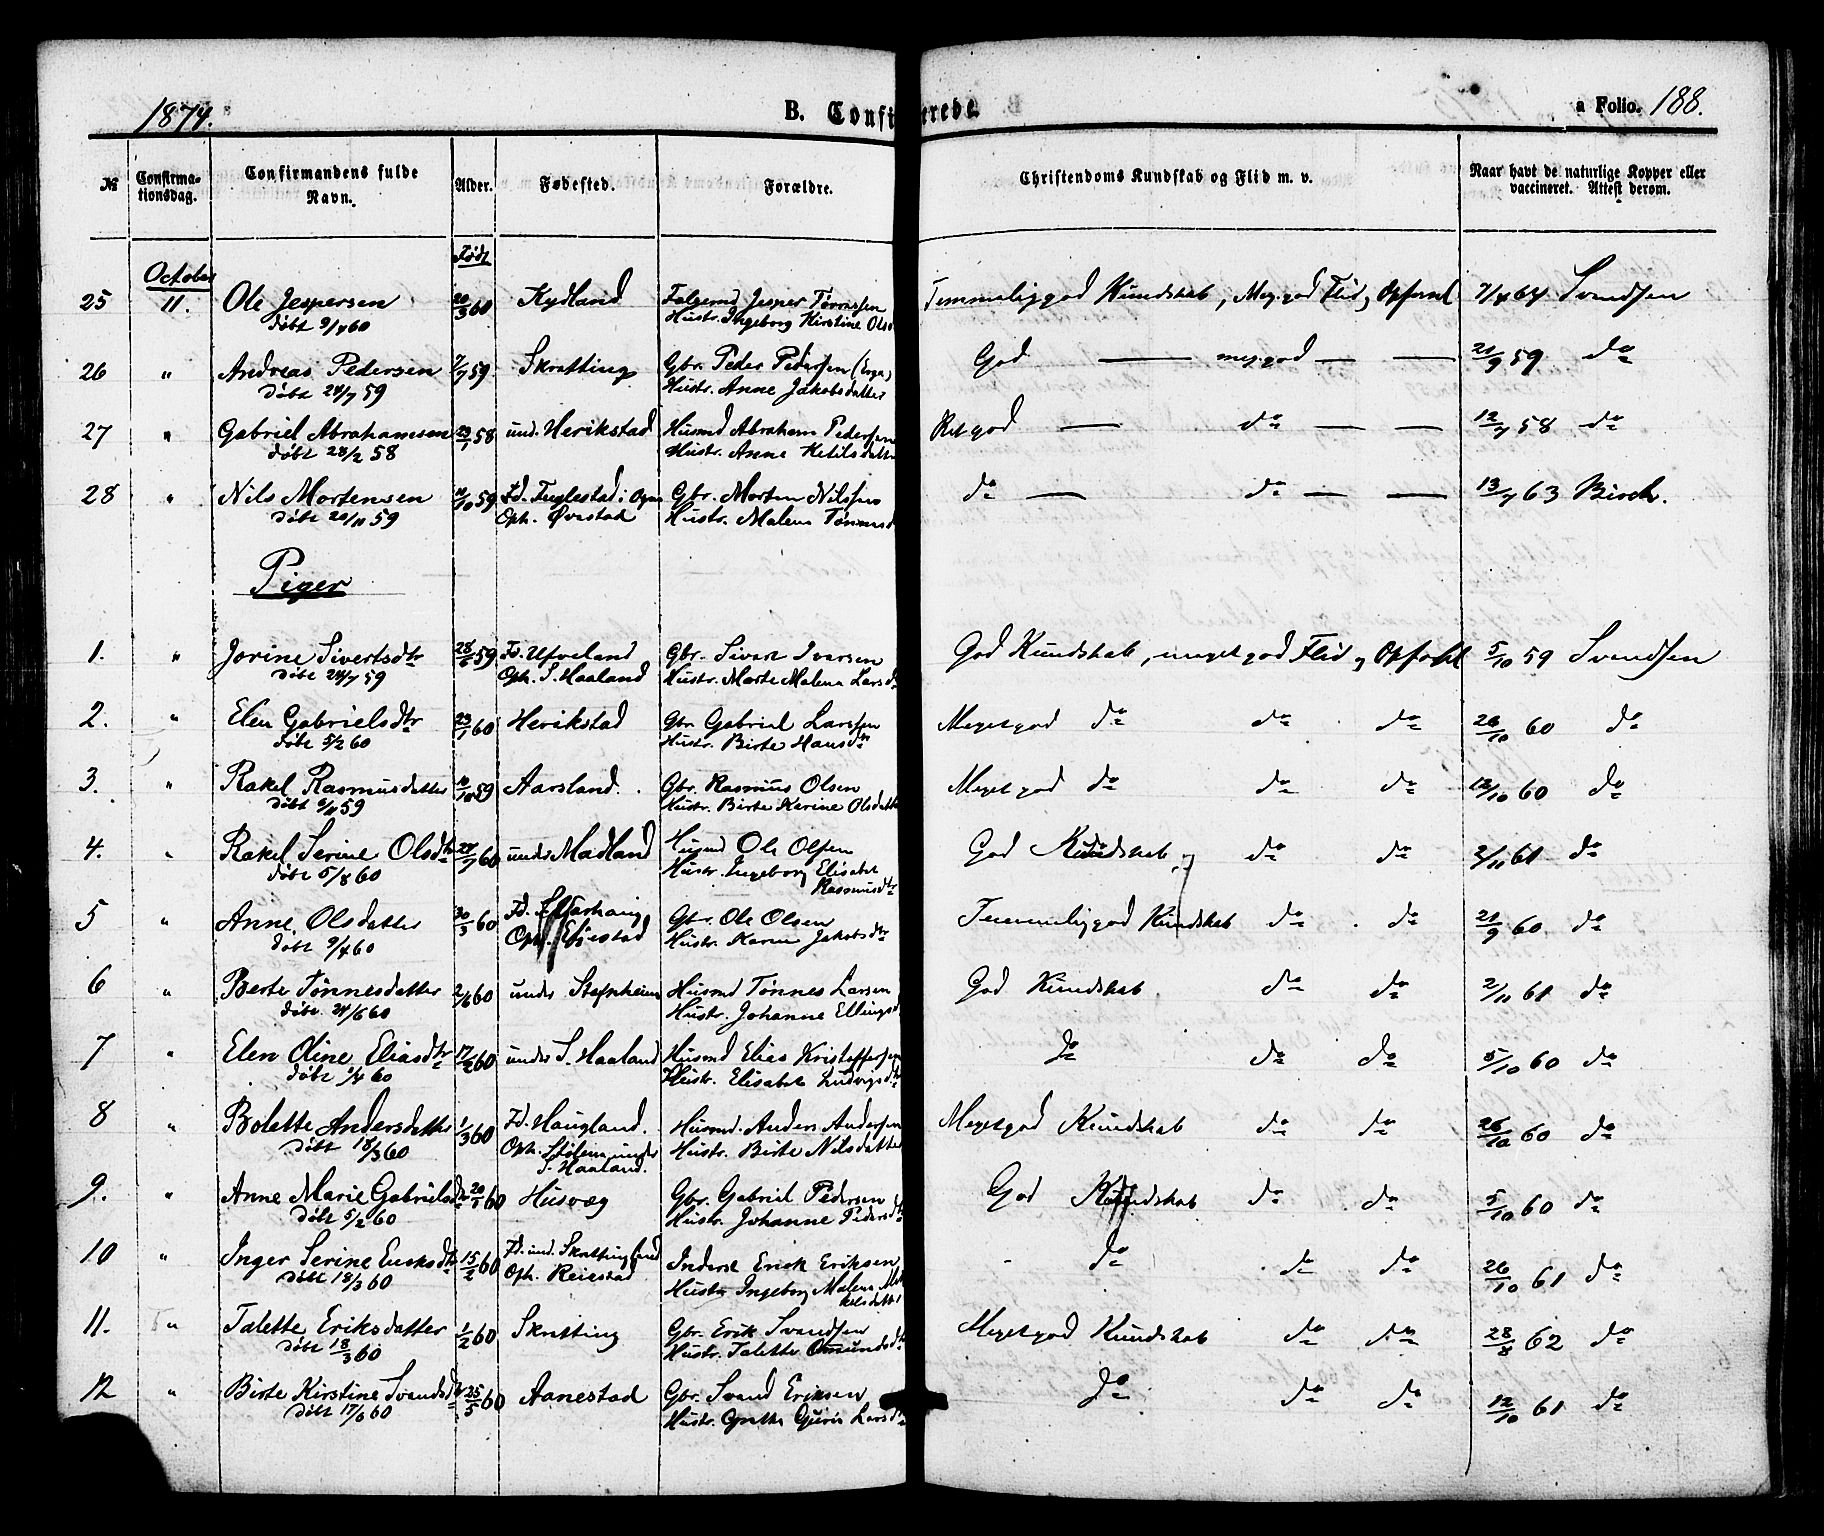 1874.
B. Confirmerede.
a Folio. 188.
№ Confirmationsdag. Confirmandens fulde Navn. Alder. Fødested. Forældre. Christendoms Kundskab og Flid m. v. Naar havt de naturlige Kopper eller vaccineret. Attest derom.
Født
October
25 11. Ole Jespersen 20/3 60 Kydland Jesper Tønnessen Temmeliggod Kundskab, Meg. god Flid og Opførsel 7/4 64 Svendsen
døbt 9/4 60 Hustr. Ingeborg Kirstine Olsd
26 " Andreas Pedersen 7/7 59. Skratting Gbr. Peder Pedersen God — meg. god — — 21/9 59 do
døbt 24/7 59 Hustr. Anne Jakobsdatter
27 " Gabriel Abrahamsen 23/1 58 und. Herikstad Husmd Abraham Pedersen Ret god — do — — 12/7 58 do
døbt 28/2 58 Hustr. Anne Ketilsdatt
28 " Nils Mortensen 11/10 59 Fd. Fuglestad i Ogne Gbr. Morten Nilssen do — do — — 13/7 63 Birch.
døbt 20/11 59 Oph. Øvestad Hustr. Malena Tønnesd
Piger
1. " Jorine Sivertsdtr 28/6 59 Fd. Ueland Gbr. Sivert Ivarsen God Kundskab, meget god Flid og Opførsel 5/10 59 Svendsen
døbt 24/7 59 Oph. S. Haaland Hustr. Marte Malena Larsd
2. " Elen Gabrielsdtr 23/1 60 Herikstad Gbr Gabriel Larssen Meget god do do do 26/10 60 do
døbt 5/2 60 Hustr. Birte Hansdtr
3. " Rakel Rasmusdatter 10/10 59 Aarsland. Gbr. Rasmus Olsen Meget god do do do 12/10 60 do
døbt 6/11 59 Hustr. Birte Karine Olsdatter
4. " Rakel Serine Olsdtr 24/7 60 under Madland Husmd Ole Olsen God Kundskab do do 2/11 61 do
døbt 5/8 60 Hustr. Ingeborg Elisabet
Rasmusdtr
5 " Anne Olsdatter 30/3 60 Fd. Gbr. Ole Olsen Temmeliggod Kundskab do do 21/9 60 do
døbt 9/4 60 Oph. Hustr. Karen Jakobsdtr
6 " Berte Tønnesdatter 2/6 60 under Stefnheim Husmd Tønnes Larsen God Kundskab do do 2/10 61 do
døbt 24/6 60 Hustr. Johanne Ellingsd
7 " Elen Oline Eliasdtr 17/2 60 under S. Haaland Husmd Elias Kristoffersen do do do 5/10 60 do
døbt 1/4 60 Hustr. Elisabet Ludvigsdtr
8 " Bolette Andersdatter 1/3 60 Fd. Haugland. Husmd. Anders Andersen Meget god Kundskab do do 26/10 60 do
døbt 18/3 60 Oph. Stølen under Hustr. Birte Nilsdatter
S. Haaland.
9. " Anne Marie Gabrielsdtr 20/1 60 Husvæg Gbr. Gabriel Pedersen God Kundskab do do 5/10 60 do
døbt 5/2 60 Hustr. Johanne Pedersdtr
10 " Inger Serine Eriksdtr 15/2 60 Fd. und. Skrettingland Inderst Erick Eriksen do do do 26/10 61 do
døbt 18/3 60 Oph. Reiestad Hustr. Ingeborg Malena
11. " Talette Eriksdatter 1/2 60 Skratting Gbr. Erik Svendsen Meget god Kundskab do do 28/8 62 do
døbt 18/3 60 Hustr. Talette Omundsdtr
12 " Birte Kirstine Svendsdtr 25/5 60 Aanestad Gbr. Svend Eriksen do do do 12/10 61 do
døbt 17/6 60 Hustr. Gurie Larsdtr